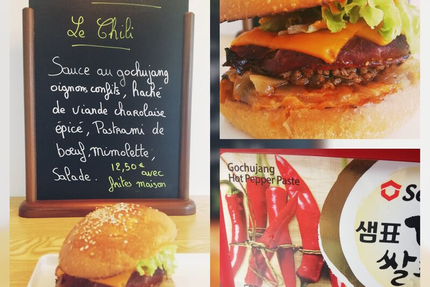 Le Chili
Sauce au gochujang
oignons confits, haché
de viande charolaise
épicé, Pastrami de
bœuf, Mimolette,
Salade. 12,50 € avec
frites maison
Gochujang
Hot Pepper Paste
샘표